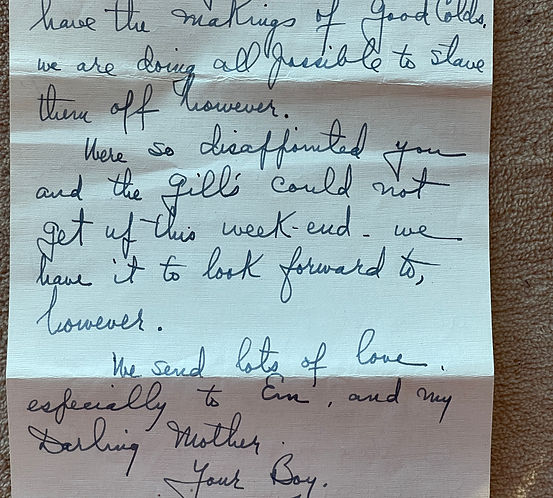 have the makings of good colds.
we are doing all possible to stave
them off however.
Were so disappointed you
and the Gill's could not
get up this week-end - we
have it to look forward to,
however.
We send lots of love,
especially to Em, and my
Darling Mother.
Your Boy.